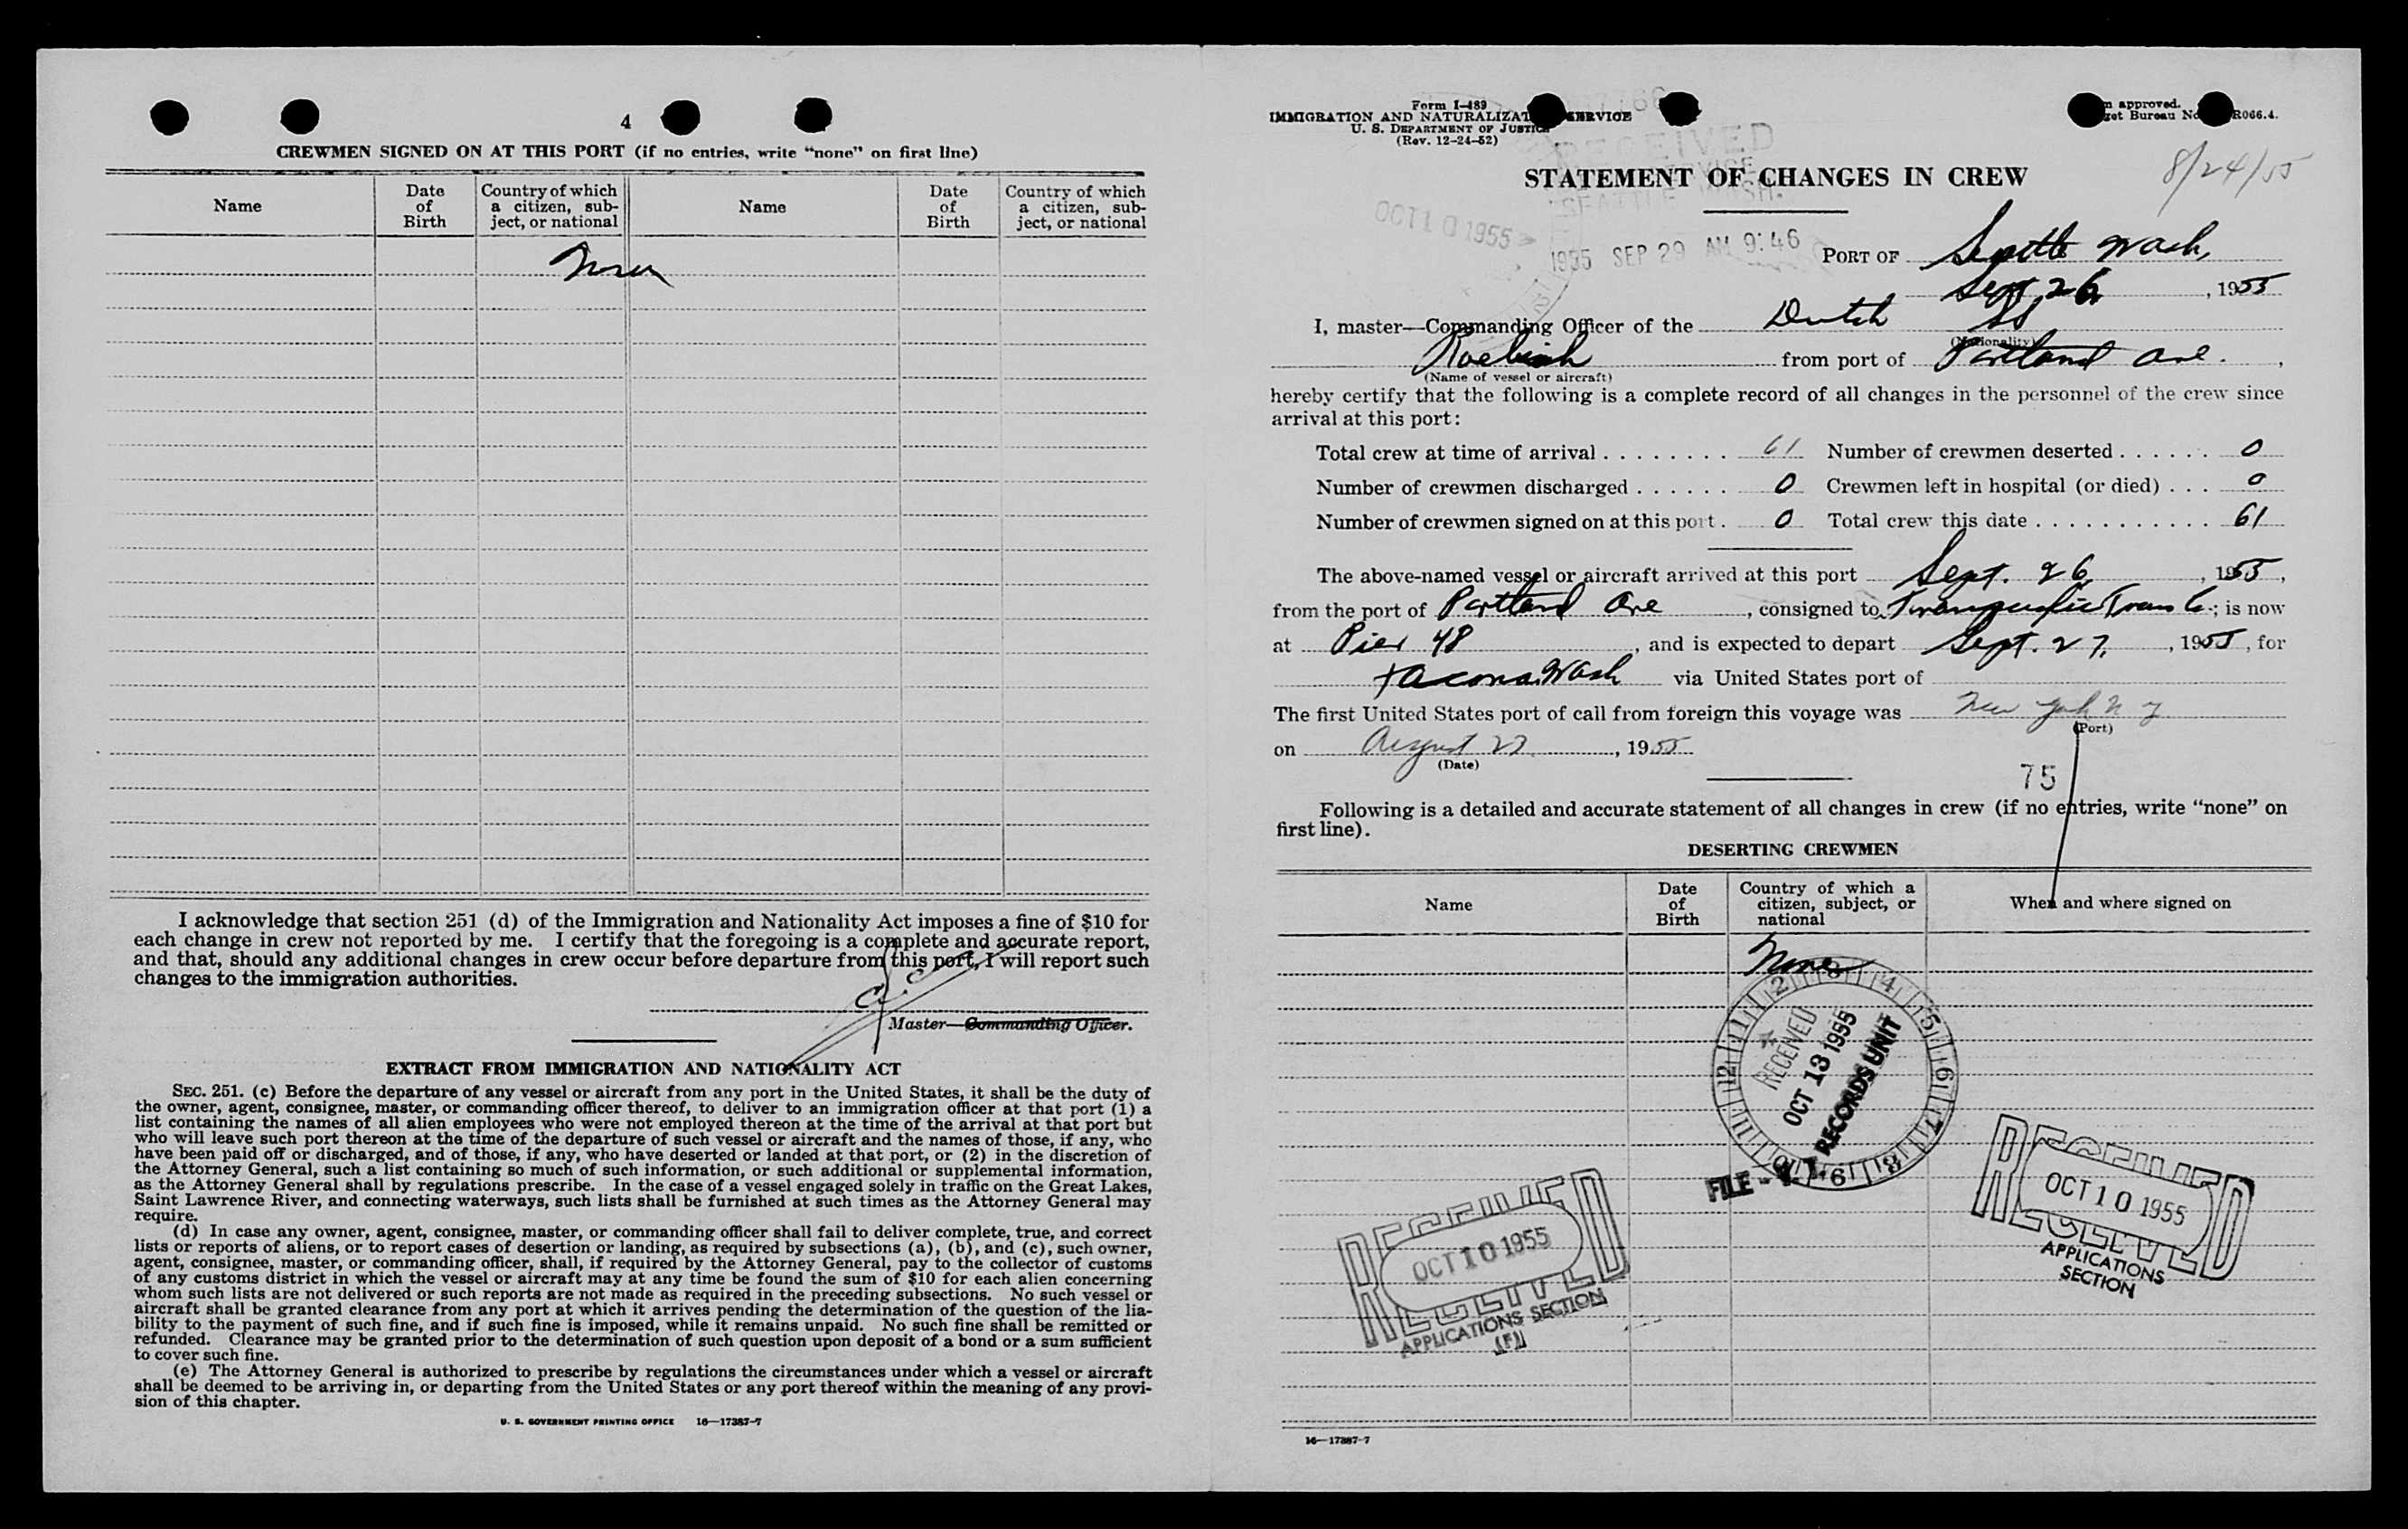 4
CREWMEN SIGNED ON AT THIS PORT (if no entries, write "none" on first line)
Name
Date of Birth
Country of which a citizen, subject, or national
Name
Date of Birth
Country of which a citizen, subject, or national
None
I acknowledge that section 251 (d) of the Immigration and Nationality Act imposes a fine of $10 for
each change in crew not reported by me. I certify that the foregoing is a complete and accurate report,
and that, should any additional changes in crew occur before departure from this port, I will report such
changes to the immigration authorities.
Master—Commanding Officer.
EXTRACT FROM IMMIGRATION AND NATIONALITY ACT
SEC. 251. (c) Before the departure of any vessel or aircraft from any port in the United States, it shall be the duty of
the owner, agent, consignee, master, or commanding officer thereof, to deliver to an immigration officer at that port (1) a
list containing the names of all alien employees who were not employed thereon at the time of the arrival at that port but
who will leave such port thereon at the time of the departure of such vessel or aircraft and the names of those, if any, who
have been paid off or discharged, and of those, if any, who have deserted or landed at that port, or (2) in the discretion of
the Attorney General, such a list containing so much of such information, or such additional or supplemental information,
as the Attorney General shall by regulations prescribe. In the case of a vessel engaged solely in traffic on the Great Lakes,
Saint Lawrence River, and connecting waterways, such lists shall be furnished at such times as the Attorney General may
require.
(d) In case any owner, agent, consignee, master, or commanding officer shall fail to deliver complete, true, and correct
lists or reports of aliens, or to report cases of desertion or landing, as required by subsections (a), (b), and (c), such owner,
agent, consignee, master, or commanding officer, shall, if required by the Attorney General, pay to the collector of customs
of any customs district in which the vessel or aircraft may at any time be found the sum of $10 for each alien concerning
whom such lists are not delivered or such reports are not made as required in the preceding subsections. No such vessel or
aircraft shall be granted clearance from any port at which it arrives pending the determination of the question of the lia-
bility to the payment of such fine, and if such fine is imposed, while it remains unpaid. No such fine shall be remitted or
refunded. Clearance may be granted prior to the determination of such question upon deposit of a bond or a sum sufficient
to cover such fine.
(e) The Attorney General is authorized to prescribe by regulations the circumstances under which a vessel or aircraft
shall be deemed to be arriving in, or departing from the United States or any port thereof within the meaning of any provi-
sion of this chapter.
U. S. GOVERNMENT PRINTING OFFICE 16—17387-7
Form I-489
IMMIGRATION AND NATURALIZAT SERVICE
U. S. DEPARTMENT OF JUSTICE
(Rev. 12-24-52)
approved.
get Bureau No R066.4.
8/24/55
RECEIVED
SERVICE
SEATTLE WASH.
STATEMENT OF CHANGES IN CREW
OCT 10 1955
1955 SEP 29 AM 9:46
PORT OF Seattle Wash,
Sept 26, 1955
I, master—Commanding Officer of the Dutch SS
(Nationality)
from port of Portland Ore.,
(Name of vessel or aircraft)
hereby certify that the following is a complete record of all changes in the personnel of the crew since
arrival at this port:
Total crew at time of arrival ........ 61 Number of crewmen deserted ...... 0
Number of crewmen discharged ...... 0 Crewmen left in hospital (or died) ... 0
Number of crewmen signed on at this port . 0 Total crew this date ........... 61
The above-named vessel or aircraft arrived at this port Sept. 26, 1955,
from the port of Portland Ore, consigned to Transpacific Trans Co.; is now
at Pier 48, and is expected to depart Sept. 27, 1955, for
Tacoma Wash via United States port of
The first United States port of call from foreign this voyage was New York N Y
(Port)
on August 27, 1955
(Date)
75
Following is a detailed and accurate statement of all changes in crew (if no entries, write "none" on
first line).
DESERTING CREWMEN
Name
Date of Birth
Country of which a citizen, subject, or national
When and where signed on
None
RECEIVED
OCT 13 1955
RECORDS UNIT
RECEIVED
OCT 10 1955
RECEIVED
APPLICATIONS SECTION
(F)
RECEIVED
OCT 10 1955
RECEIVED
APPLICATIONS
SECTION
16—17387-7